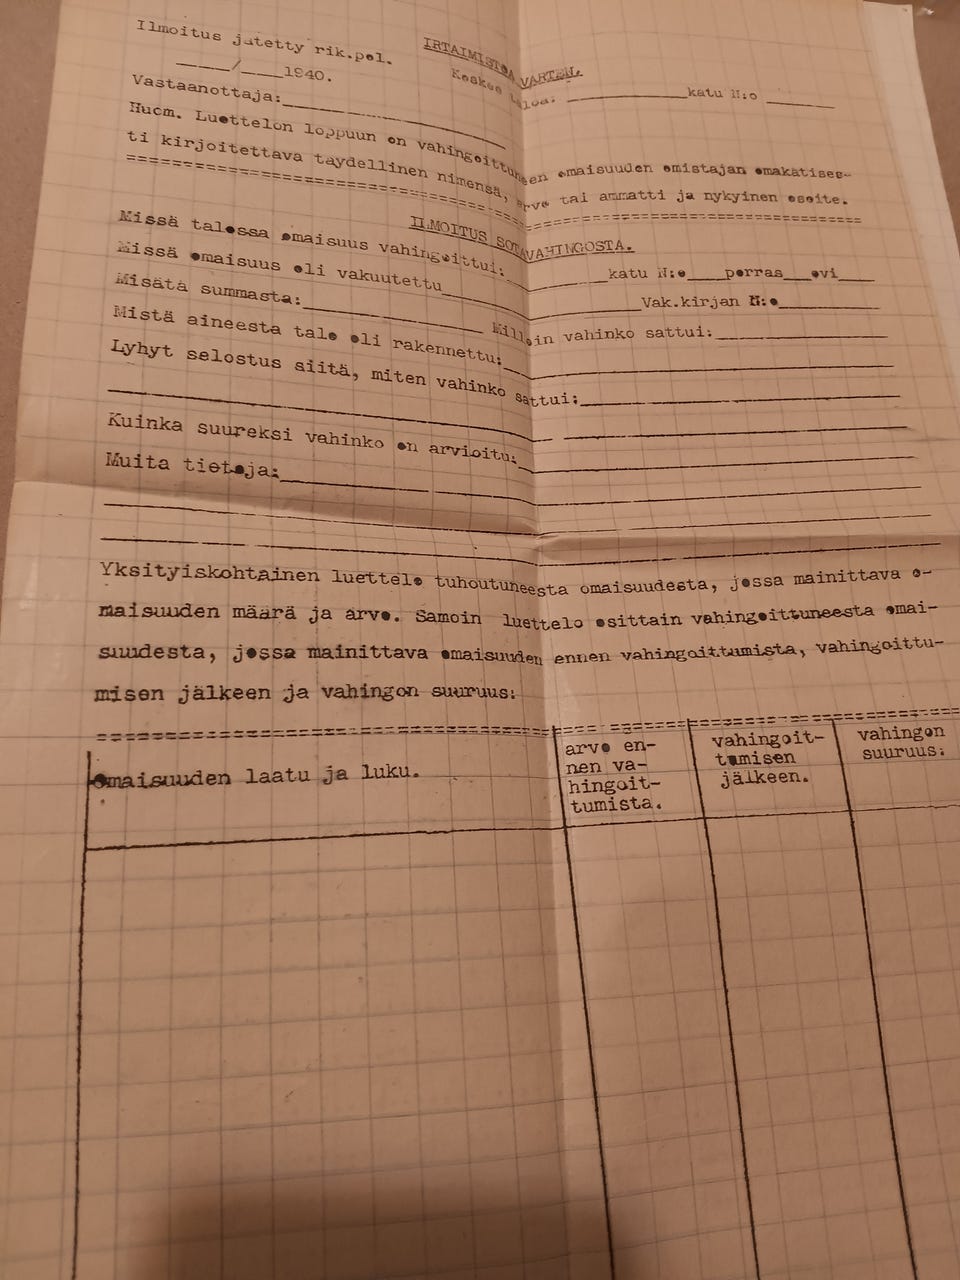 Ilmoitus jätetty rik.pol.
____/____1940.
IRTAIMISTOA VARTEN.
Vastaanottaja:____________
Koskee taloa: ____________katu N:o ______
Huom. Luettelon loppuun on vahingoittuneen omaisuuden omistajan omakätises-
ti kirjoitettava täydellinen nimensä, arvo tai ammatti ja nykyinen osoite.
ILMOITUS SOTAVAHINGOSTA.
Missä talossa omaisuus vahingoittui:__________katu N:o____porras___ovi____
Missä omaisuus oli vakuutettu____________________Vak.kirjan N:o__________
Misätä summasta:________________ Milloin vahinko sattui:________________
Mistä aineesta talo oli rakennettu:____________________
Lyhyt selostus siitä, miten vahinko sattui:____________________
Kuinka suureksi vahinko on arvioitu:____________________
Muita tietoja:____________________
Yksityiskohtainen luettelo tuhoutuneesta omaisuudesta, jossa mainittava o-
maisuuden määrä ja arvo. Samoin luettelo osittain vahingoittuneesta omai-
suudesta, jossa mainittava omaisuuden ennen vahingoittumista, vahingoittu-
misen jälkeen ja vahingon suuruus:
omaisuuden laatu ja luku.
arvo en-
nen va-
hingoit-
tumista.
vahingoit-
tumisen
jälkeen.
vahingon
suuruus: